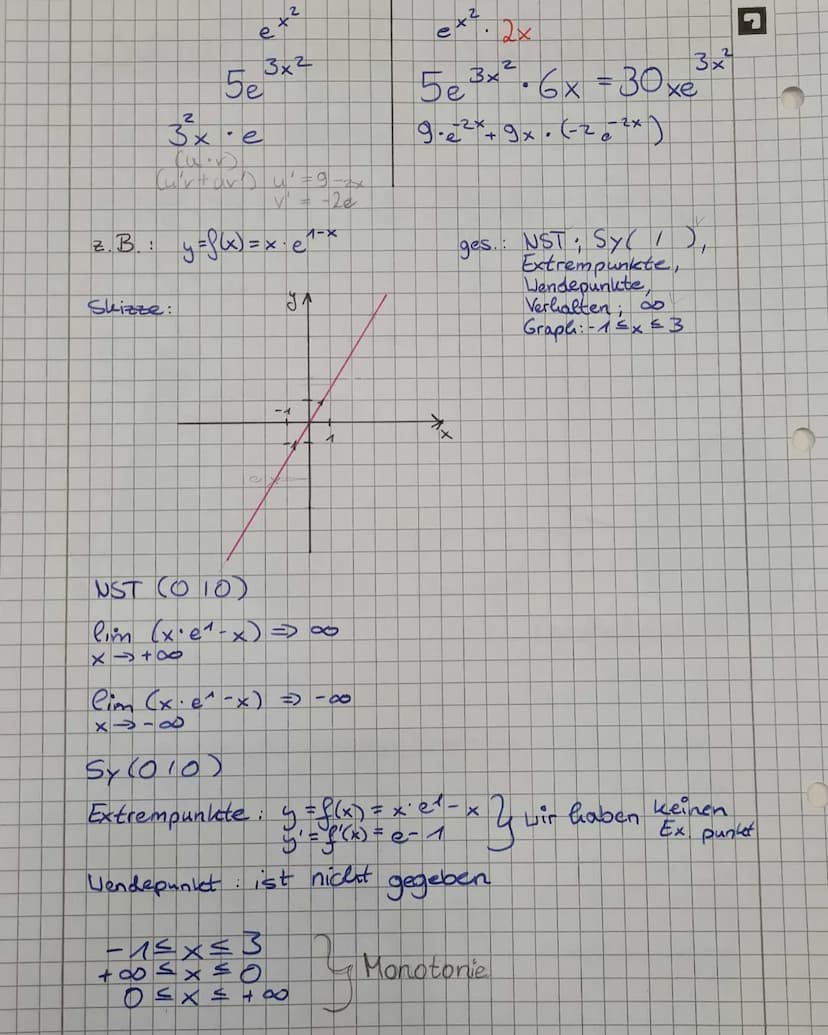 e^{x^2} e^{x^2} · 2x
5e^{3x^2} 5e^{3x^2} · 6x = 30xe^{3x^2}
3^2x · e 9·e^{-2x} + 9x · (-2e^{-2x})
(u·v)
(u'v + uv') u' = 9-2x
v' = -2e
z.B.: y=f(x)=x·e^{1-x} ges.: NST; Sy( / ),
Extrempunkte,
Wendepunkte,
Verhalten; ∞
Graph: -1 ≤ x ≤ 3
Skizze:
y
-1
1
-1
x
NST (0|0)
lim (x·e^1-x) => ∞
x → +∞
lim (x·e^1-x) => -∞
x → -∞
Sy (0|0)
Extrempunkte: y=f(x)=x·e^1-x } wir haben keinen
y'=f'(x)=e-1 Ex. punkt
Wendepunkt: ist nicht gegeben
-1 ≤ x ≤ 3
+∞ ≤ x ≤ 0 } Monotonie
0 ≤ x ≤ +∞